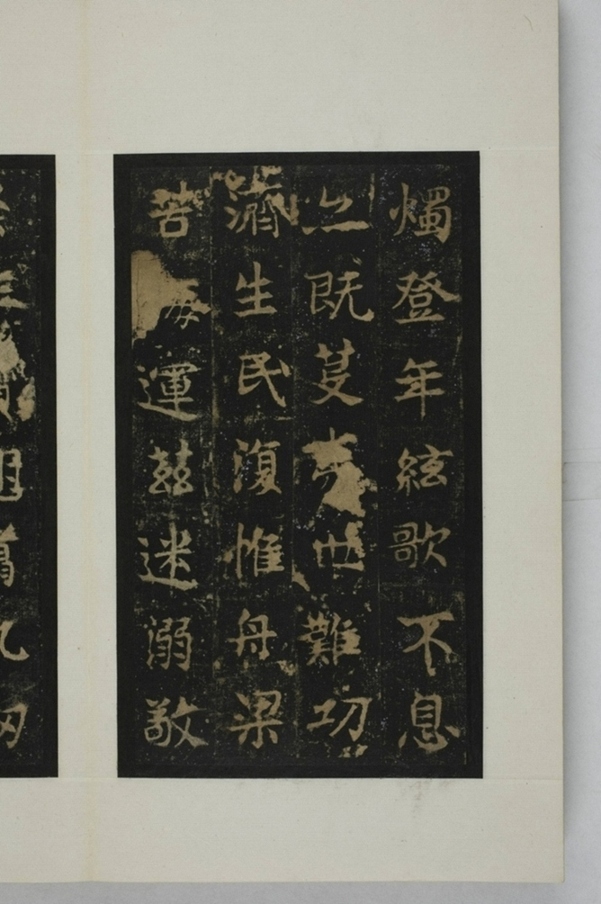 燭登年絃歌不息
既芟夷世難功
濟生民復惟舟梁
苦海運茲迷溺敬